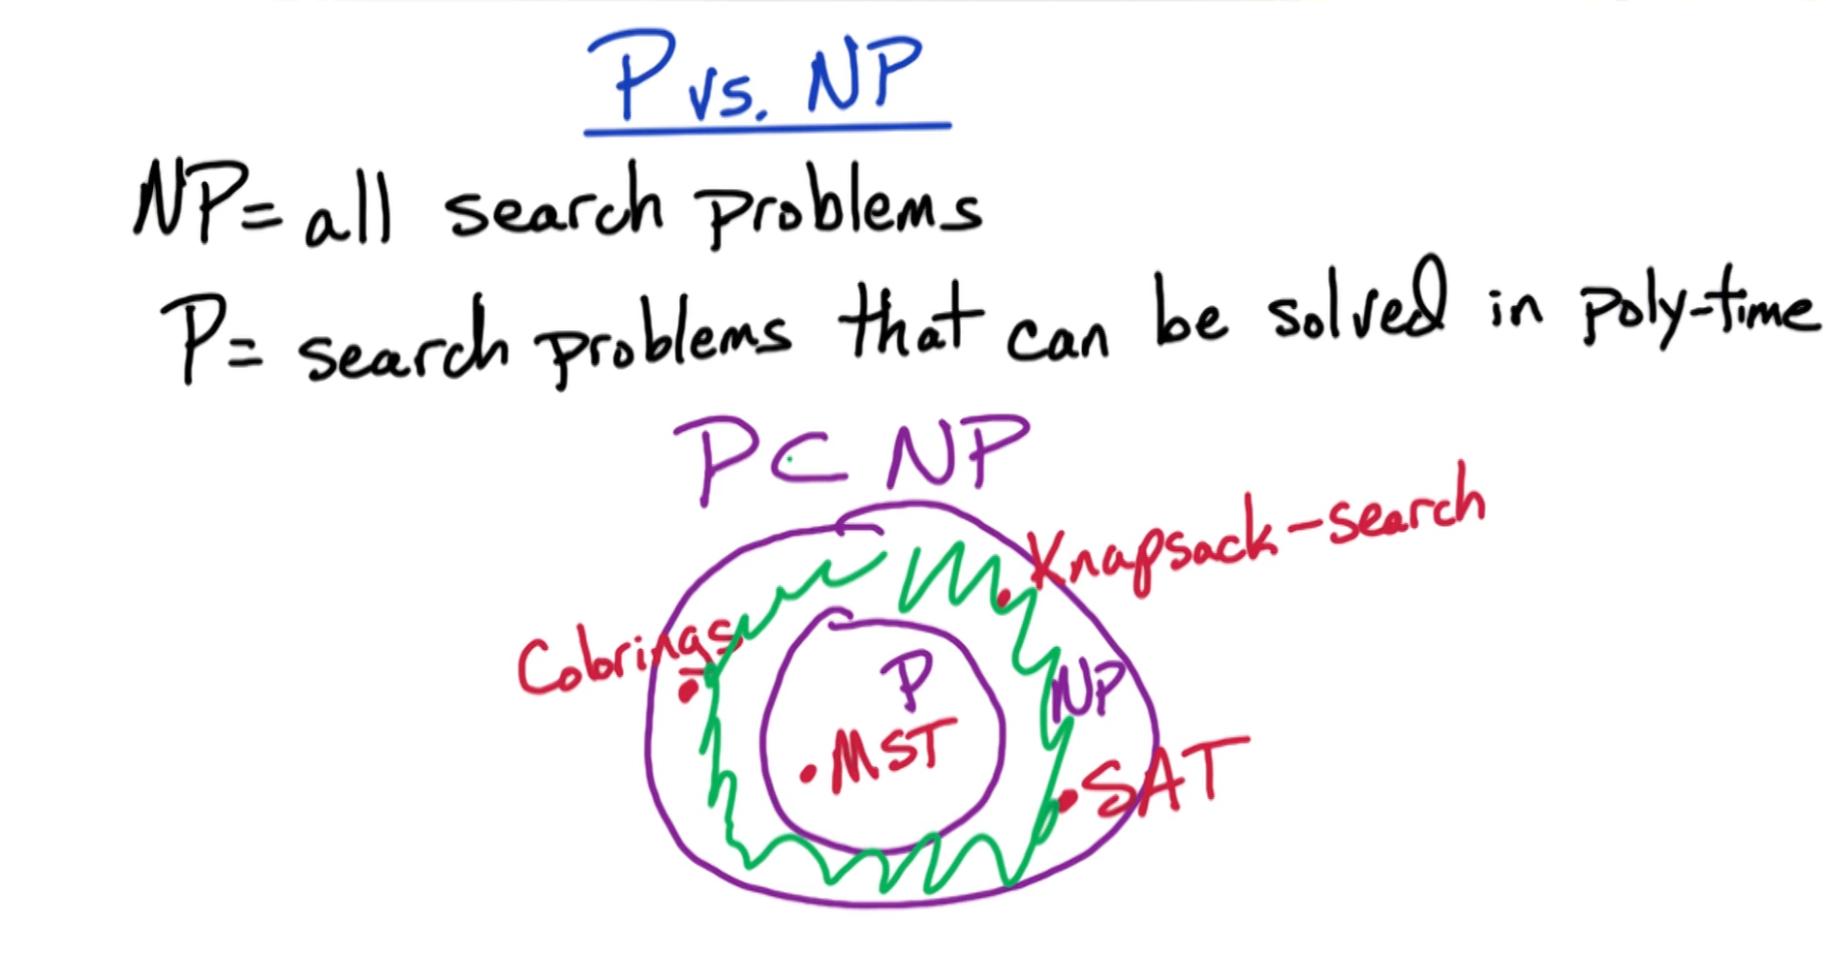 P vs. NP
NP = all search problems
P = search problems that can be solved in poly-time
P ⊂ NP
Knapsack-search
Colorings
P
NP
MST
SAT